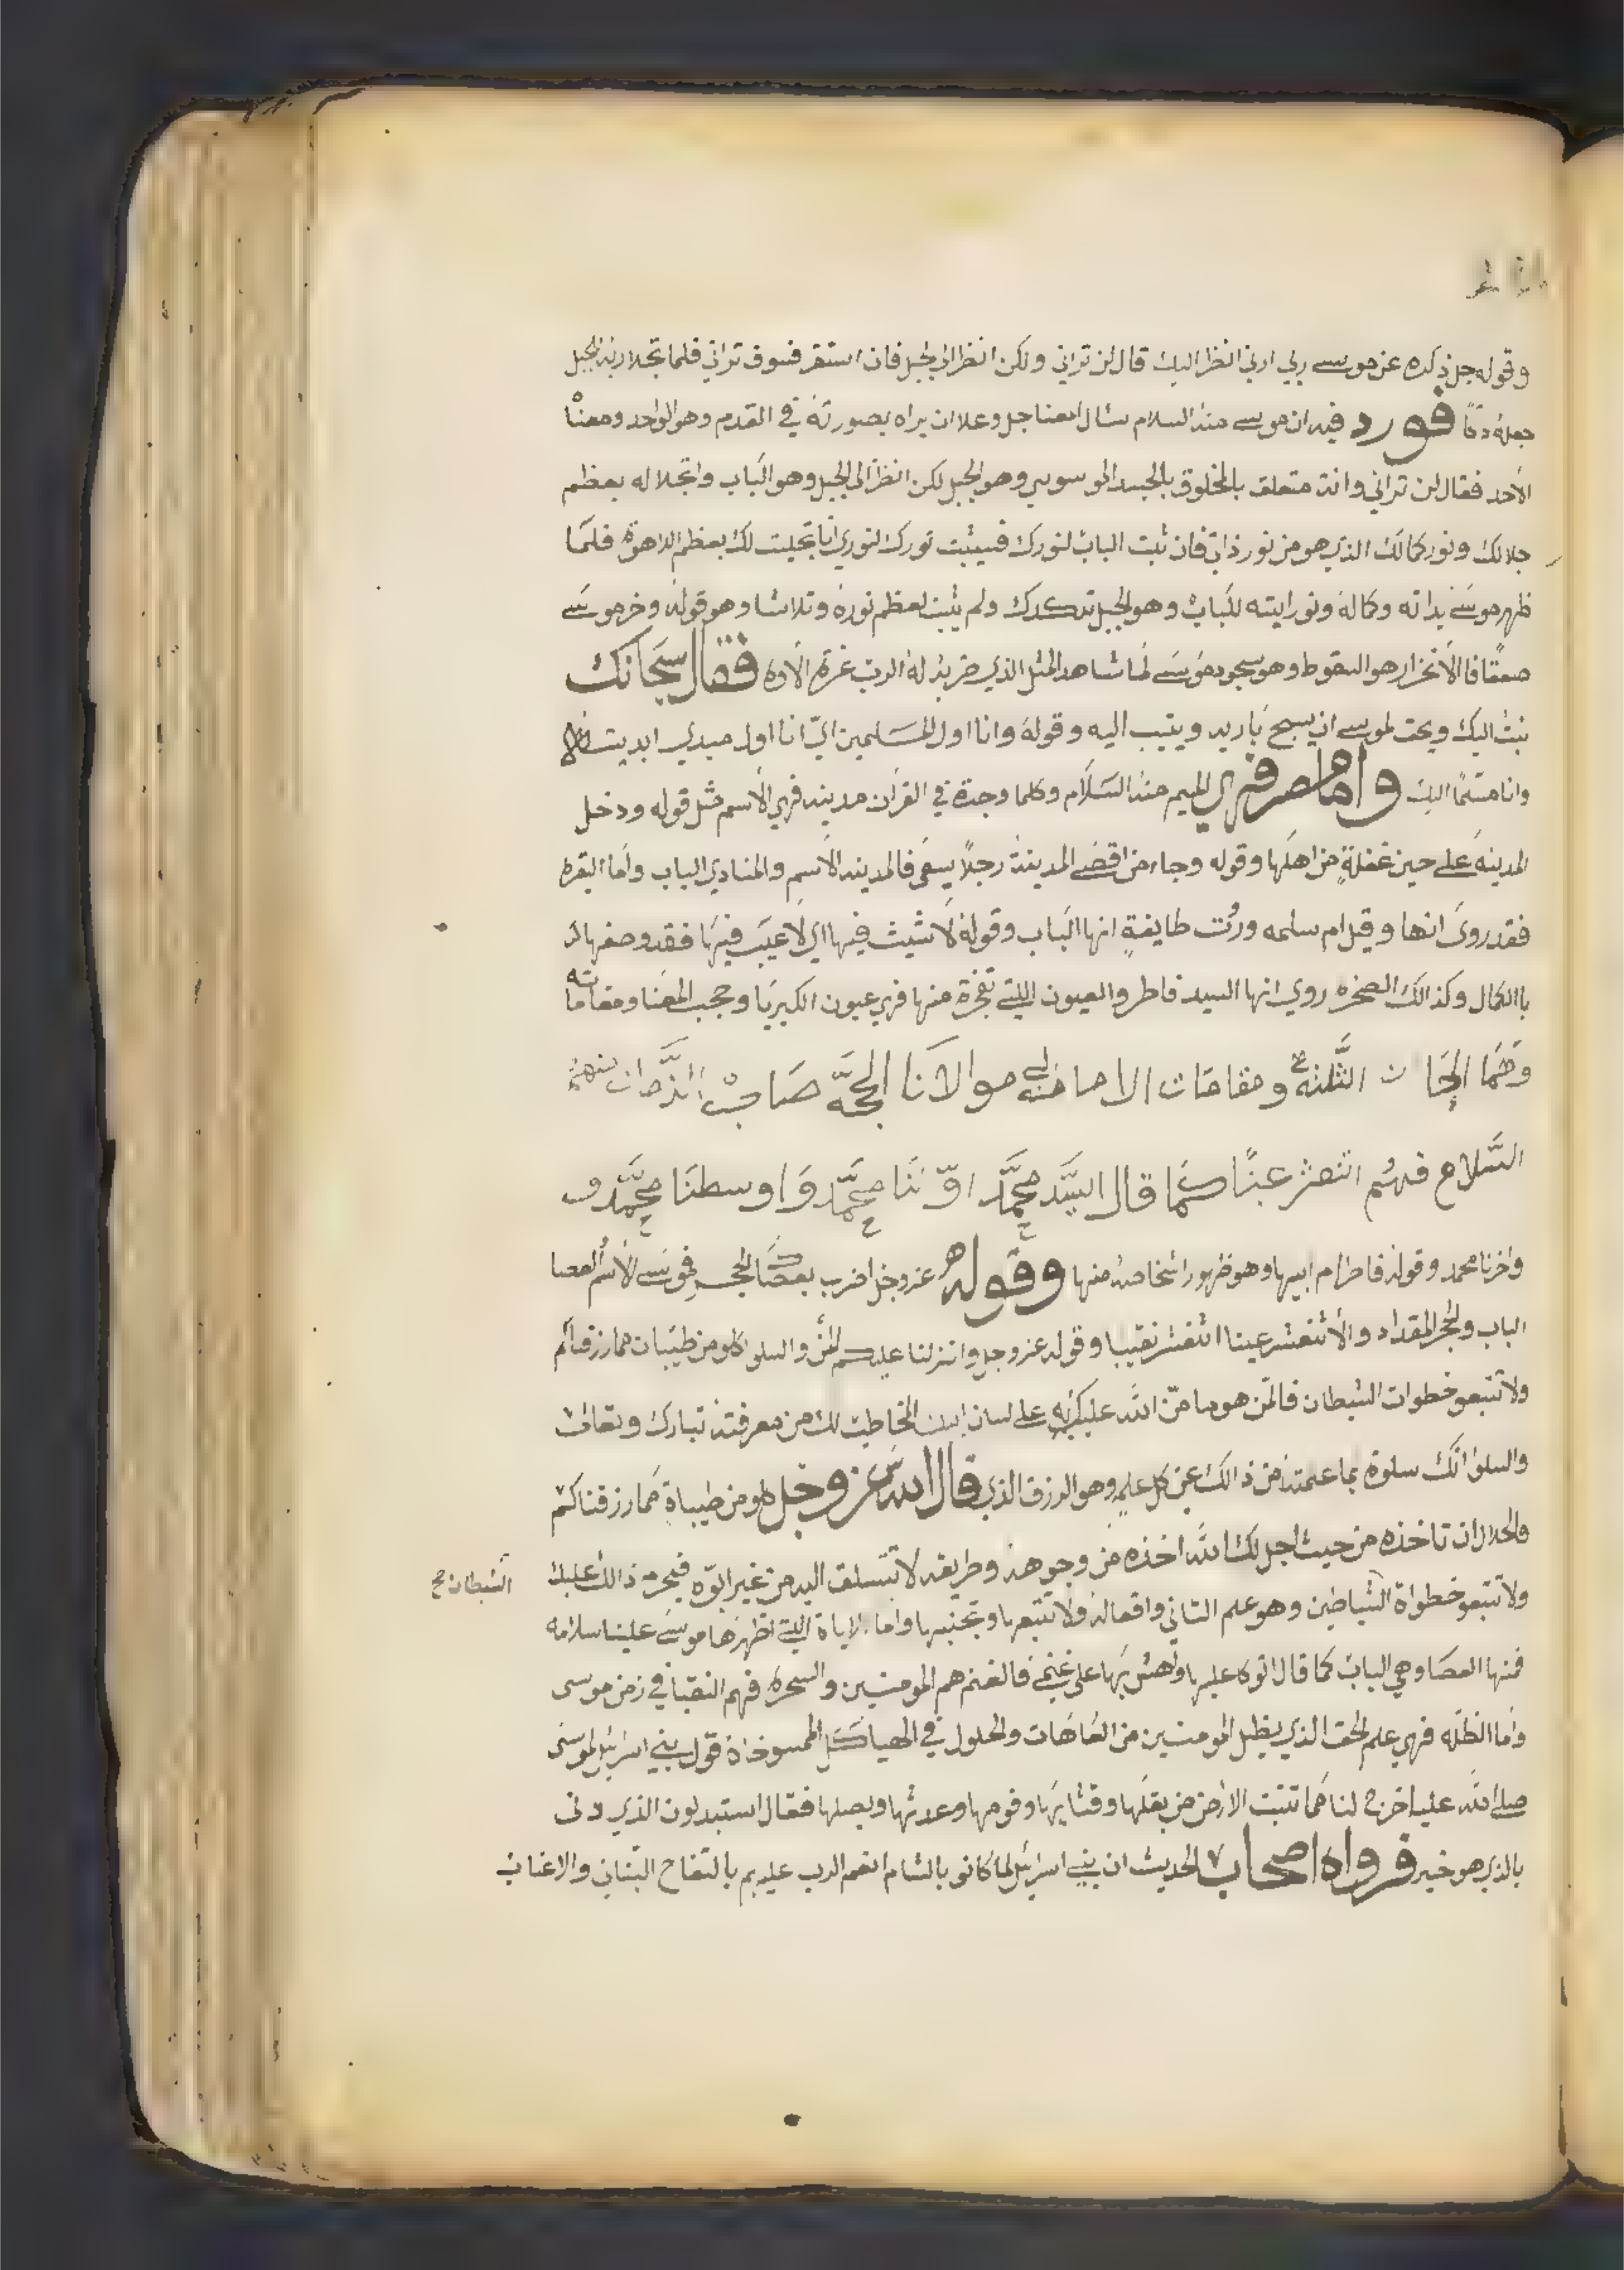 وقوله جل ذكره عن موسى ربي ارني انظر اليك قال لن تراني ولكن انظر الى الجبل فان استقر فسوف تراني فلما تجلا ربه للجبل
جعله دكا فورد فيه ان موسى منه السلام سال المعنا جل وعلا ان يراه بصورته في القدم وهو الواحد ومعنا
الأحد فقال لن تراني وانت متعلق بالمخلوق بالجسد الموسوي وهو الجبل لكن انظر الى الجبل وهو الباب واتجلا له بعظم
جلالك ونور كمالك الذي هو من نور ذاتي فان ثبت الباب لنورك فسيثبت نورك لنوري اذا تجليت لك بعظم اللاهوة فلما
ظهر موسى بذاته وكماله ونورانيته للباب وهو الجبل تدكدك ولم يثبت لعظم نوره وتلاشا وهو قوله وخر موسى
صعقا فالأنخرار هو السقوط وهو سجود موسى لما شاهد المثل الذي ضربه له الرب غرة الاوه فقال سبحانك
تبت اليك ويحق لموسى ان يسبح باريه ويتيب اليه وقوله وانا اول المسلمين اي انا اول عبدي ابديت
وانا مسلما اليك واما مصر فهي الميم منه السلام وكلما وجدة في القران مدينه فهي الأسم مثل قوله ودخل
المدينه على حين غفلة من اهلها وقوله وجاء من اقصى المدينة رجلا يسعى فالمدينه الأسم والمنادي الباب واما البقره
فقد روى انها وقيل ام سلمه وروت طايفة انها الباب وقوله لا شيت فيها اي لا عيب فيها فقد وصفها الله
باالكمال وكذالك الصخره روي انها السيد فاطر والعيون اللتي تفجرة منها فهي عيون الكبريا وحجب المعنا ومقاماته
ومقامات الامامه الى موالانا الحجة صاحب
السلام فهم اثنعشر عينا كما قال السيد محمد اولنا محمد واوسطنا محمد و
واخرنا محمد وقوله فاطر ام ابيها وهو ظهور اشخاصه منها وقوله عز وجل اضرب بعصاك الحجر فموسى الأسم والعصا
الباب والحجر المقداد والأثنعشر عينا اثنعشر نقيبا وقوله عز وجل وانزلنا عليكم المن والسلوا كلو من طيبات ما رزقناكم
ولا تتبعو خطوات الشيطان فالمن هو ما من الله عليك به على لسان المخاطب لك من معرفته تبارك وتعالى
والسلوا انك سلوة بما علمته من ذالك عن كل علم وهو الرزق الذي قال الله عز وجل كلو من طيباة ما رزقناكم
والحلال ان تاخذه من حيث احل لك الله اخذه من وجوهه وطريقه لا تتسلق اليه من غير ابوابه فيحرم ذالك عليك
الشيطان صح
ولا تتبعو خطواة الشياطين وهو علم الثاني وافعاله ولا تتبعها وتجنبها واما الاياة اللتي اظهرها موسى علينا سلامه
فمنها العصا وهي الباب كما قال اتوكا عليها واهش بها على غنمي فالغنم هم المومنين والسحره فهم النقبا في زمن موسى
واما الظله فهي علم الحق الذي يظل المومنين من العاهات والحلول في الهياكل الممسوخاة قول بني اسرايل لموسى
صلى الله عليه اخرج لنا مما تنبت الارض من بقلها وقثايها وفومها وعدسها وبصلها فقال استبدلون الذي دنى
بالذي هو خير فرواه اصحاب الحديث ان بني اسرايل لما كانو بالشام انعم الرب عليهم بالتفاح اللبناني والاعناب